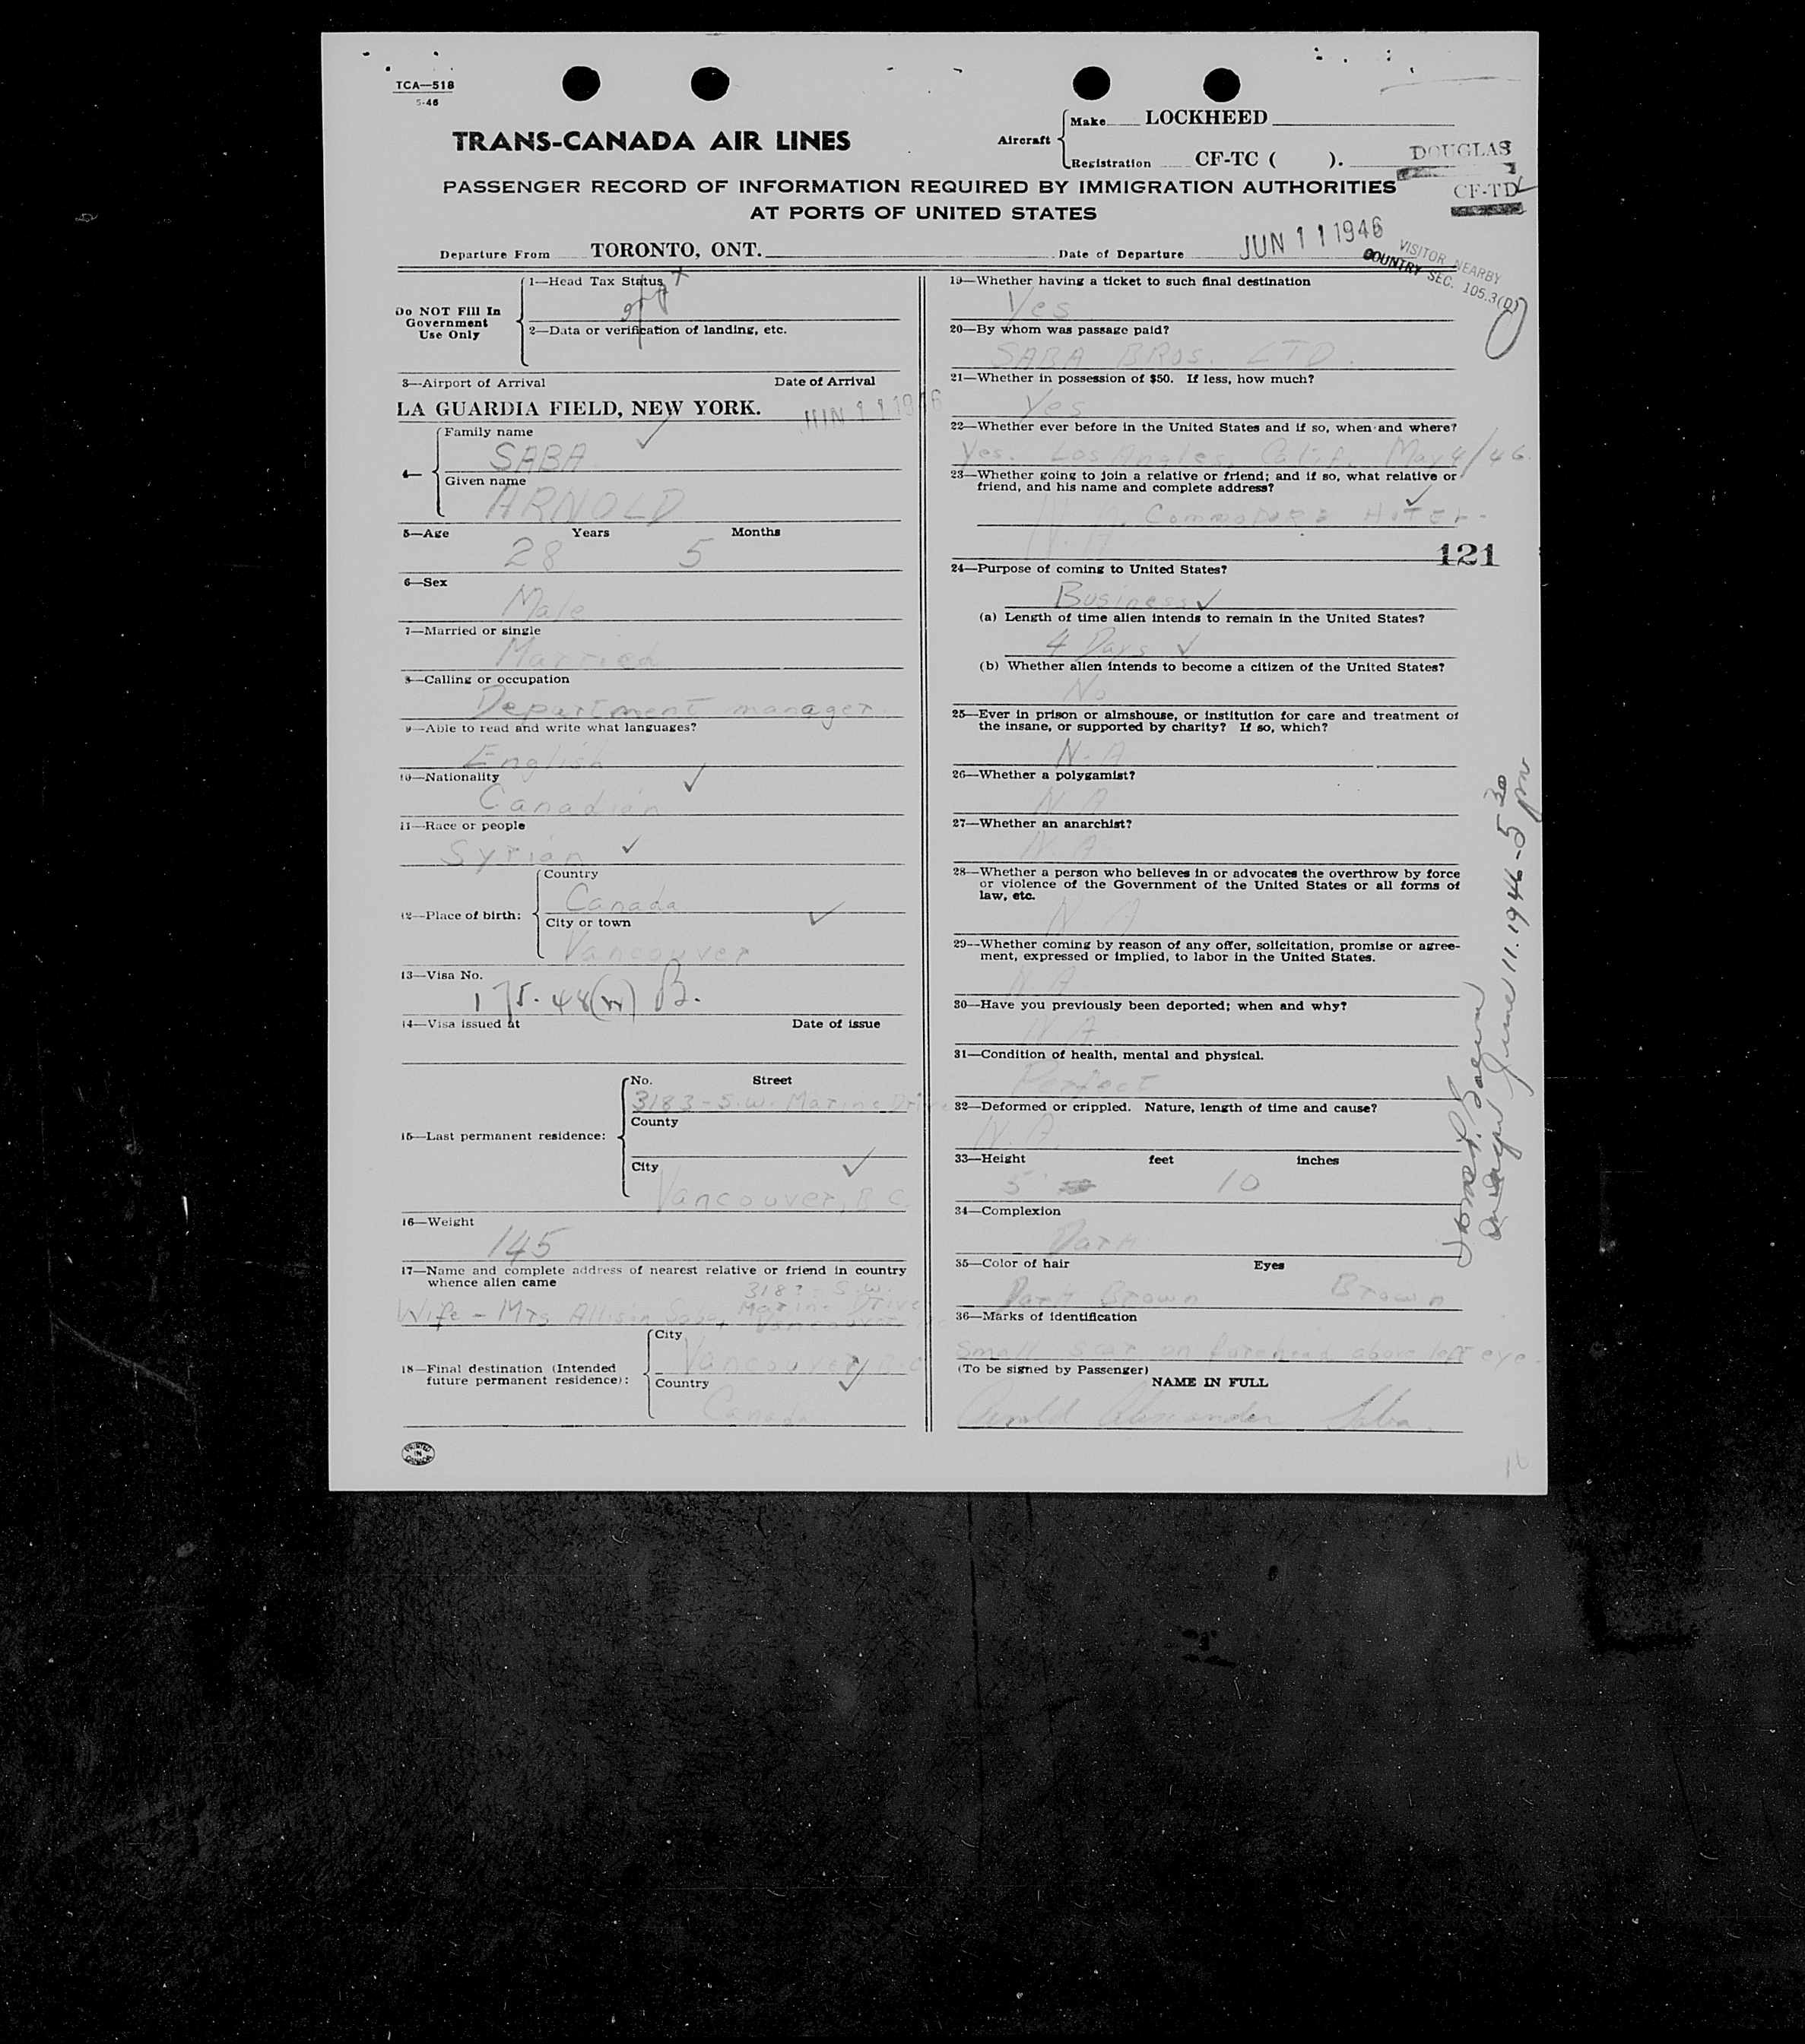 TCA—518
5-46
TRANS-CANADA AIR LINES
Aircraft
Make LOCKHEED
Registration CF-TC ( ).
DOUGLAS
CF-TD
PASSENGER RECORD OF INFORMATION REQUIRED BY IMMIGRATION AUTHORITIES
AT PORTS OF UNITED STATES
Departure From TORONTO, ONT. Date of Departure JUN 11 1946
VISITOR NEARBY
COUNTRY SEC. 105.3(D)
Do NOT Fill In
Government
Use Only
1—Head Tax Status
2—Data or verification of landing, etc.
3—Airport of Arrival Date of Arrival
LA GUARDIA FIELD, NEW YORK. JUN 11 1946
4—
Family name
SABA
Given name
ARNOLD
5—Age Years Months
28 5
6—Sex
Male
7—Married or single
Married
8—Calling or occupation
Department manager.
9—Able to read and write what languages?
English
10—Nationality
Canadian
11—Race or people
Syrian
12—Place of birth:
Country
Canada
City or town
Vancouver
13—Visa No.
14—Visa issued at Date of issue
15—Last permanent residence:
No. Street
3183-S.W. Marine Drive
County
City
Vancouver, B.C.
16—Weight
145
17—Name and complete address of nearest relative or friend in country
whence alien came
S.W.
Wife - Mrs Allison Saba, Marine Drive
Vancouver
18—Final destination (Intended
future permanent residence):
City
Vancouver, B.C.
Country
Canada
PRINTED
IN
CANADA
19—Whether having a ticket to such final destination
Yes
20—By whom was passage paid?
SABA BROS. LTD.
21—Whether in possession of $50. If less, how much?
Yes
22—Whether ever before in the United States and if so, when and where?
Yes. Los Angles, Calif. May 4/46.
23—Whether going to join a relative or friend; and if so, what relative or
friend, and his name and complete address?
Commodore Hotel-
N.A
121
24—Purpose of coming to United States?
Business
(a) Length of time alien intends to remain in the United States?
4 Days
(b) Whether alien intends to become a citizen of the United States?
No
25—Ever in prison or almshouse, or institution for care and treatment of
the insane, or supported by charity? If so, which?
N.A
26—Whether a polygamist?
N.A
27—Whether an anarchist?
N.A
28—Whether a person who believes in or advocates the overthrow by force
or violence of the Government of the United States or all forms of
law, etc.
N A
29—Whether coming by reason of any offer, solicitation, promise or agree-
ment, expressed or implied, to labor in the United States.
N.A
30—Have you previously been deported; when and why?
N.A
31—Condition of health, mental and physical.
Perfect
32—Deformed or crippled. Nature, length of time and cause?
N.A.
33—Height feet inches
5 10
34—Complexion
Dark
35—Color of hair Eyes
Dark Brown Brown
36—Marks of identification
Small scar on forehead above left eye.
(To be signed by Passenger)
NAME IN FULL
Arnold Alexander Saba
June 11. 1946-5 30 pm